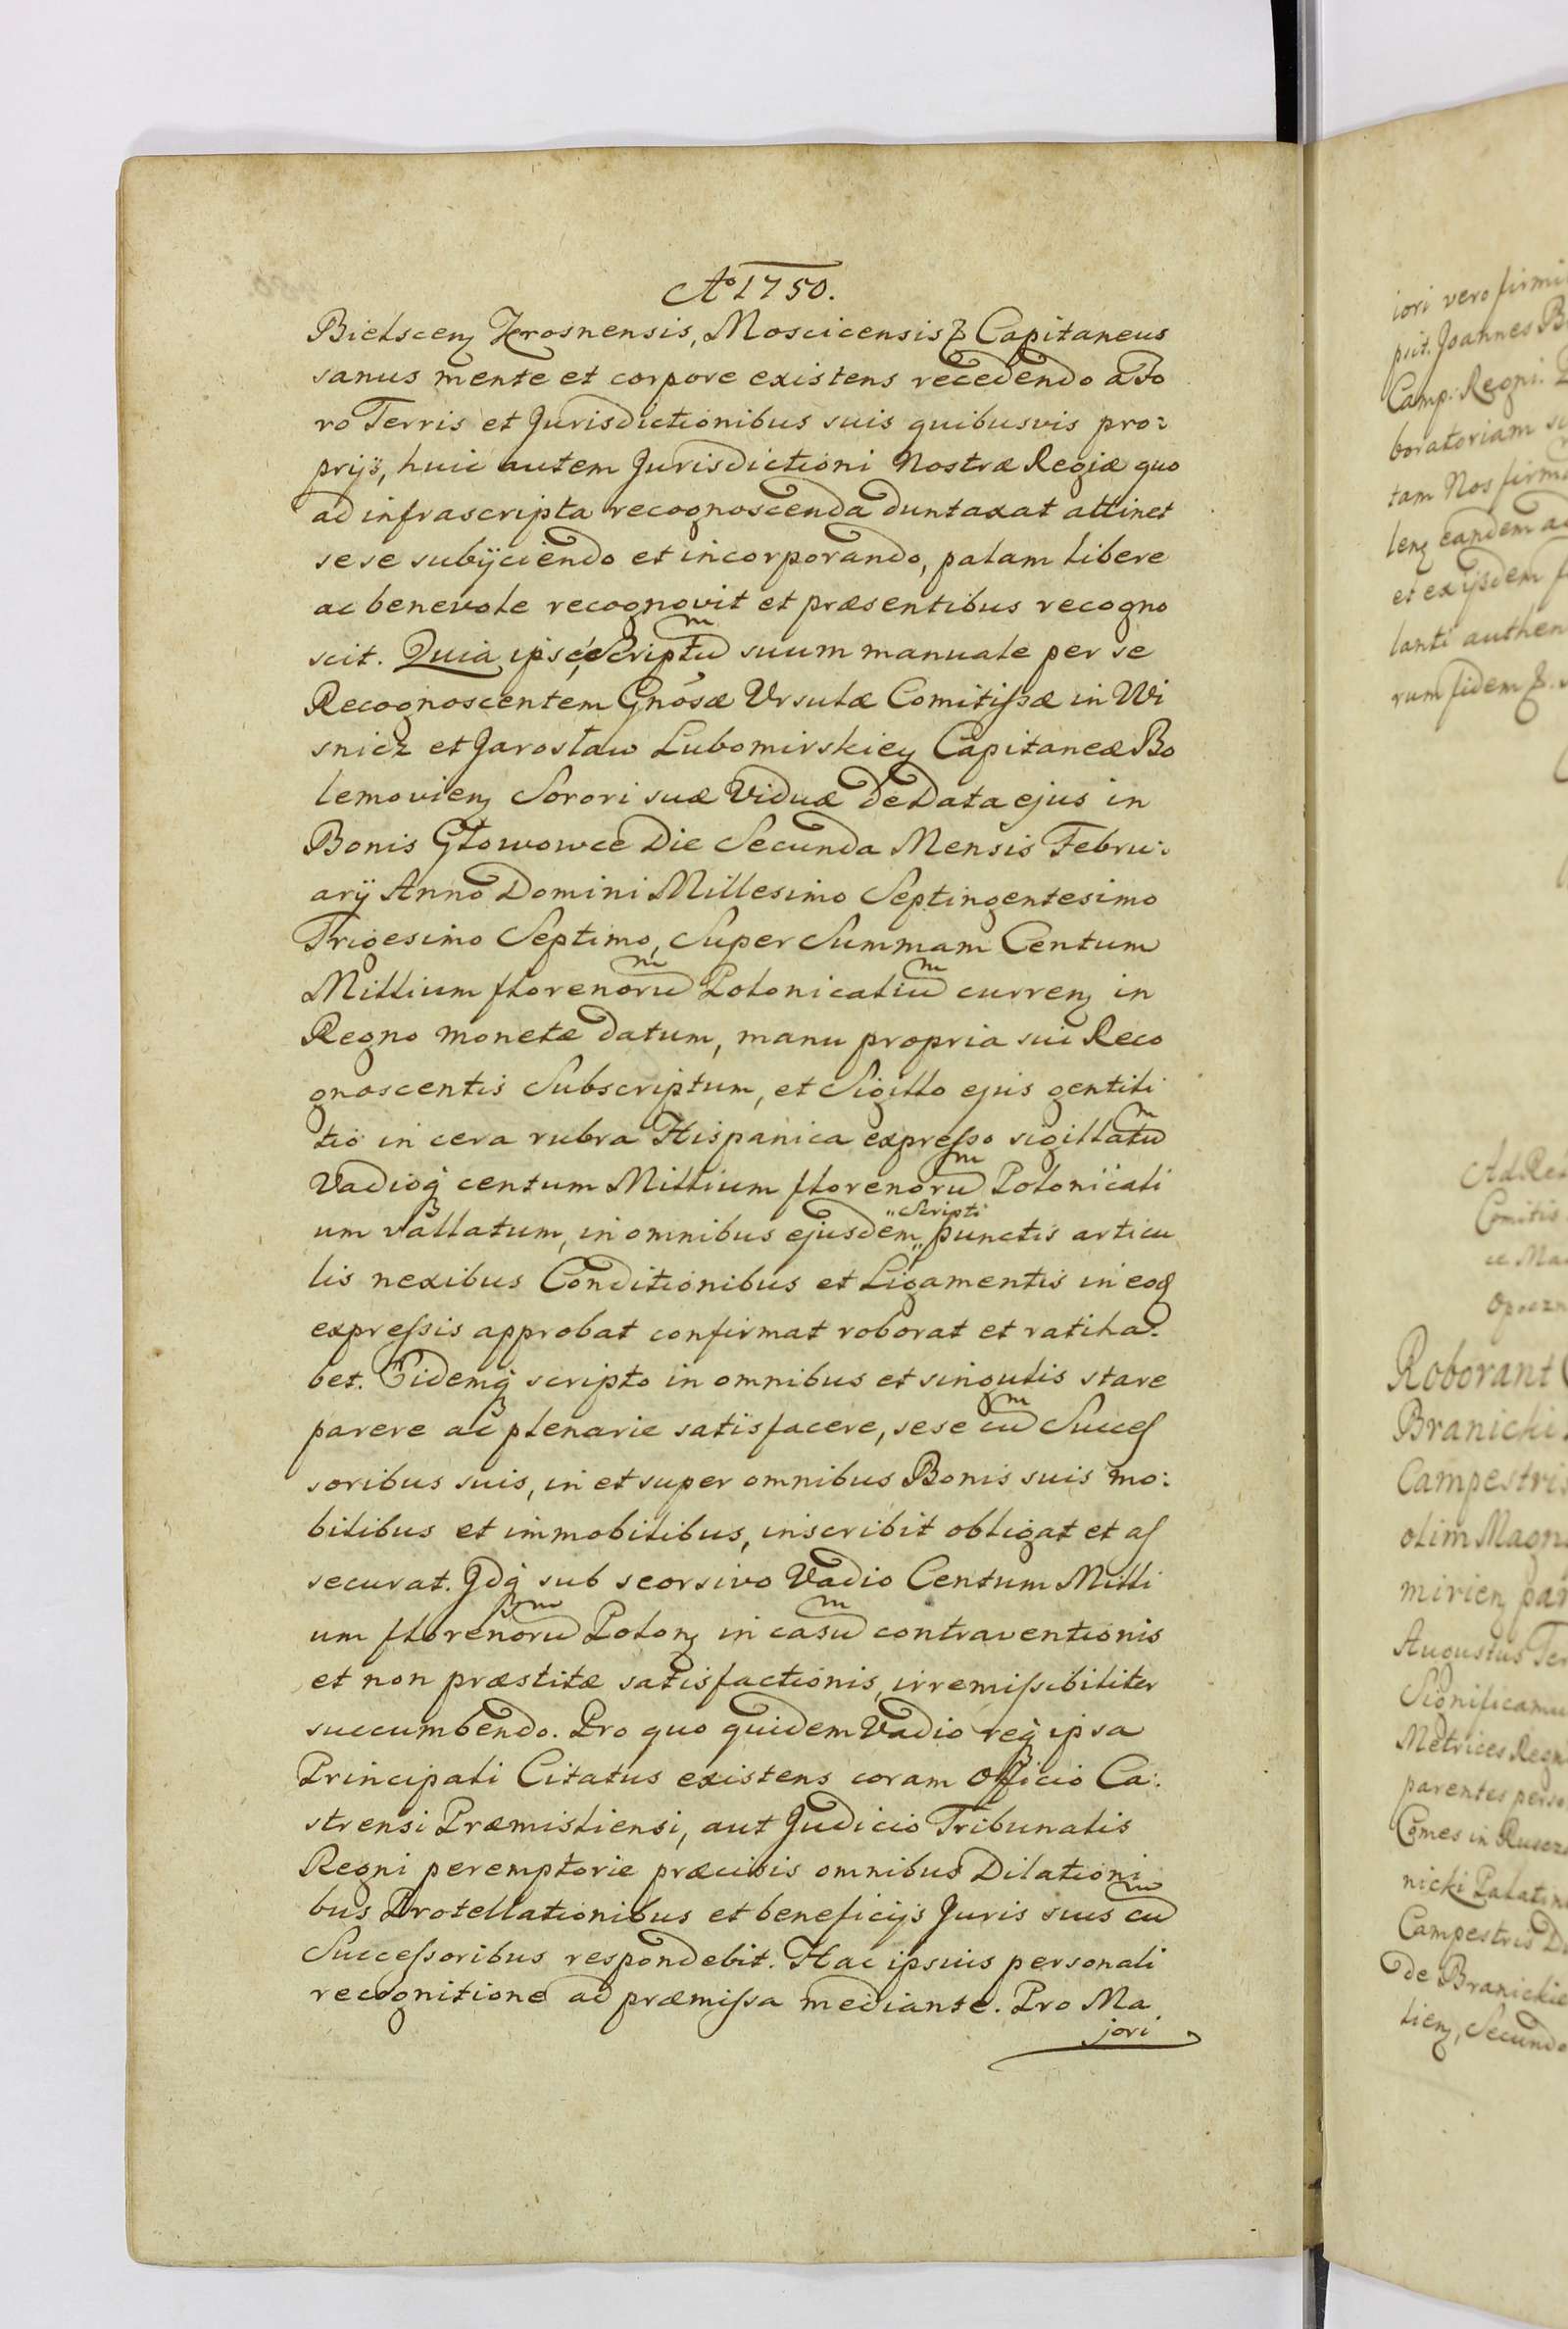 Aº 1750.
Bielscen Krosnensis, Moscicensis & Capitaneus
sanus mente et corpore existens recedendo a Fo
ro Terris et Jurisdictionibus suis quibusvis pro:
prijs, huic autem Jurisdictioni Nostræ Regiæ quo
ad infrascripta recognoscenda duntaxat attinet
sese subijciendo et incorporando, palam libere
ac benevole recognovit et præsentibus recogno
scit. Quia ipse Scriptum suum manuale per se
Recognoscentem Gnosæ Ursulæ Comitissæ in Wi
snicz et Jarosław Lubomirskiey Capitaneæ Bo
lemovien Sorori suæ Viduæ de Data ejus in
Bonis Głowowce Die Secunda Mensis Febru:
arij Anno Domini Millesimo Septingentesimo
Trigesimo Septimo, Super Summam Centum
Millium florenorum Polonicalium curren in
Regno monetæ datum, manu propria sui Reco
gnoscentis Subscriptum, et Sigillo ejus gentili
tio in cera rubra Hispanica expresso sigillatum
Vadioq centum Millium florenorum Polonicali
um vallatum, in omnibus ejusdem "Scripti" punctis articu
lis nexibus Conditionibus et Ligamentis in eod
expressis approbat confirmat roborat et ratiha:
bet. Eidemq scripto in omnibus et singulis stare
parere ac plenarie satisfacere, sese cum Succes
soribus suis, in et super omnibus Bonis suis mo:
bilibus et immobilibus, inscribit obligat et as
securat. Idq sub seorsivo Vadio Centum Milli
um florenorum Polon in casum contraventionis
et non præstitæ satisfactionis, irremissibiliter
succumbendo. Pro quo quidem Vadio req ipsa
Principali Citatus existens coram Officio Ca:
strensi Præmisliensi, aut Judicio Tribunalis
Regni peremptorie præcisis omnibus Dilationi
bus Protellationibus et beneficijs Juris suis cum
Successoribus respondebit. Hac ipsius personali
recognitione ad præmissa mediante. Pro Ma
jori
iori vero firmi
put. Joannes B
Camp. Regni.
boratoriam
tam Nos firm
len eandem a
et exijsdem f
lanti authen
rum fidem &.
Comitis
Roborant
Branicki
Campestris
olim Magn
mirien par
Augustus Ter
Significamu
Metrices Regn
parentes perso
Comes in Ruszcz
nicki Palatin
Campestris D
de Branickie
lien, Secundo